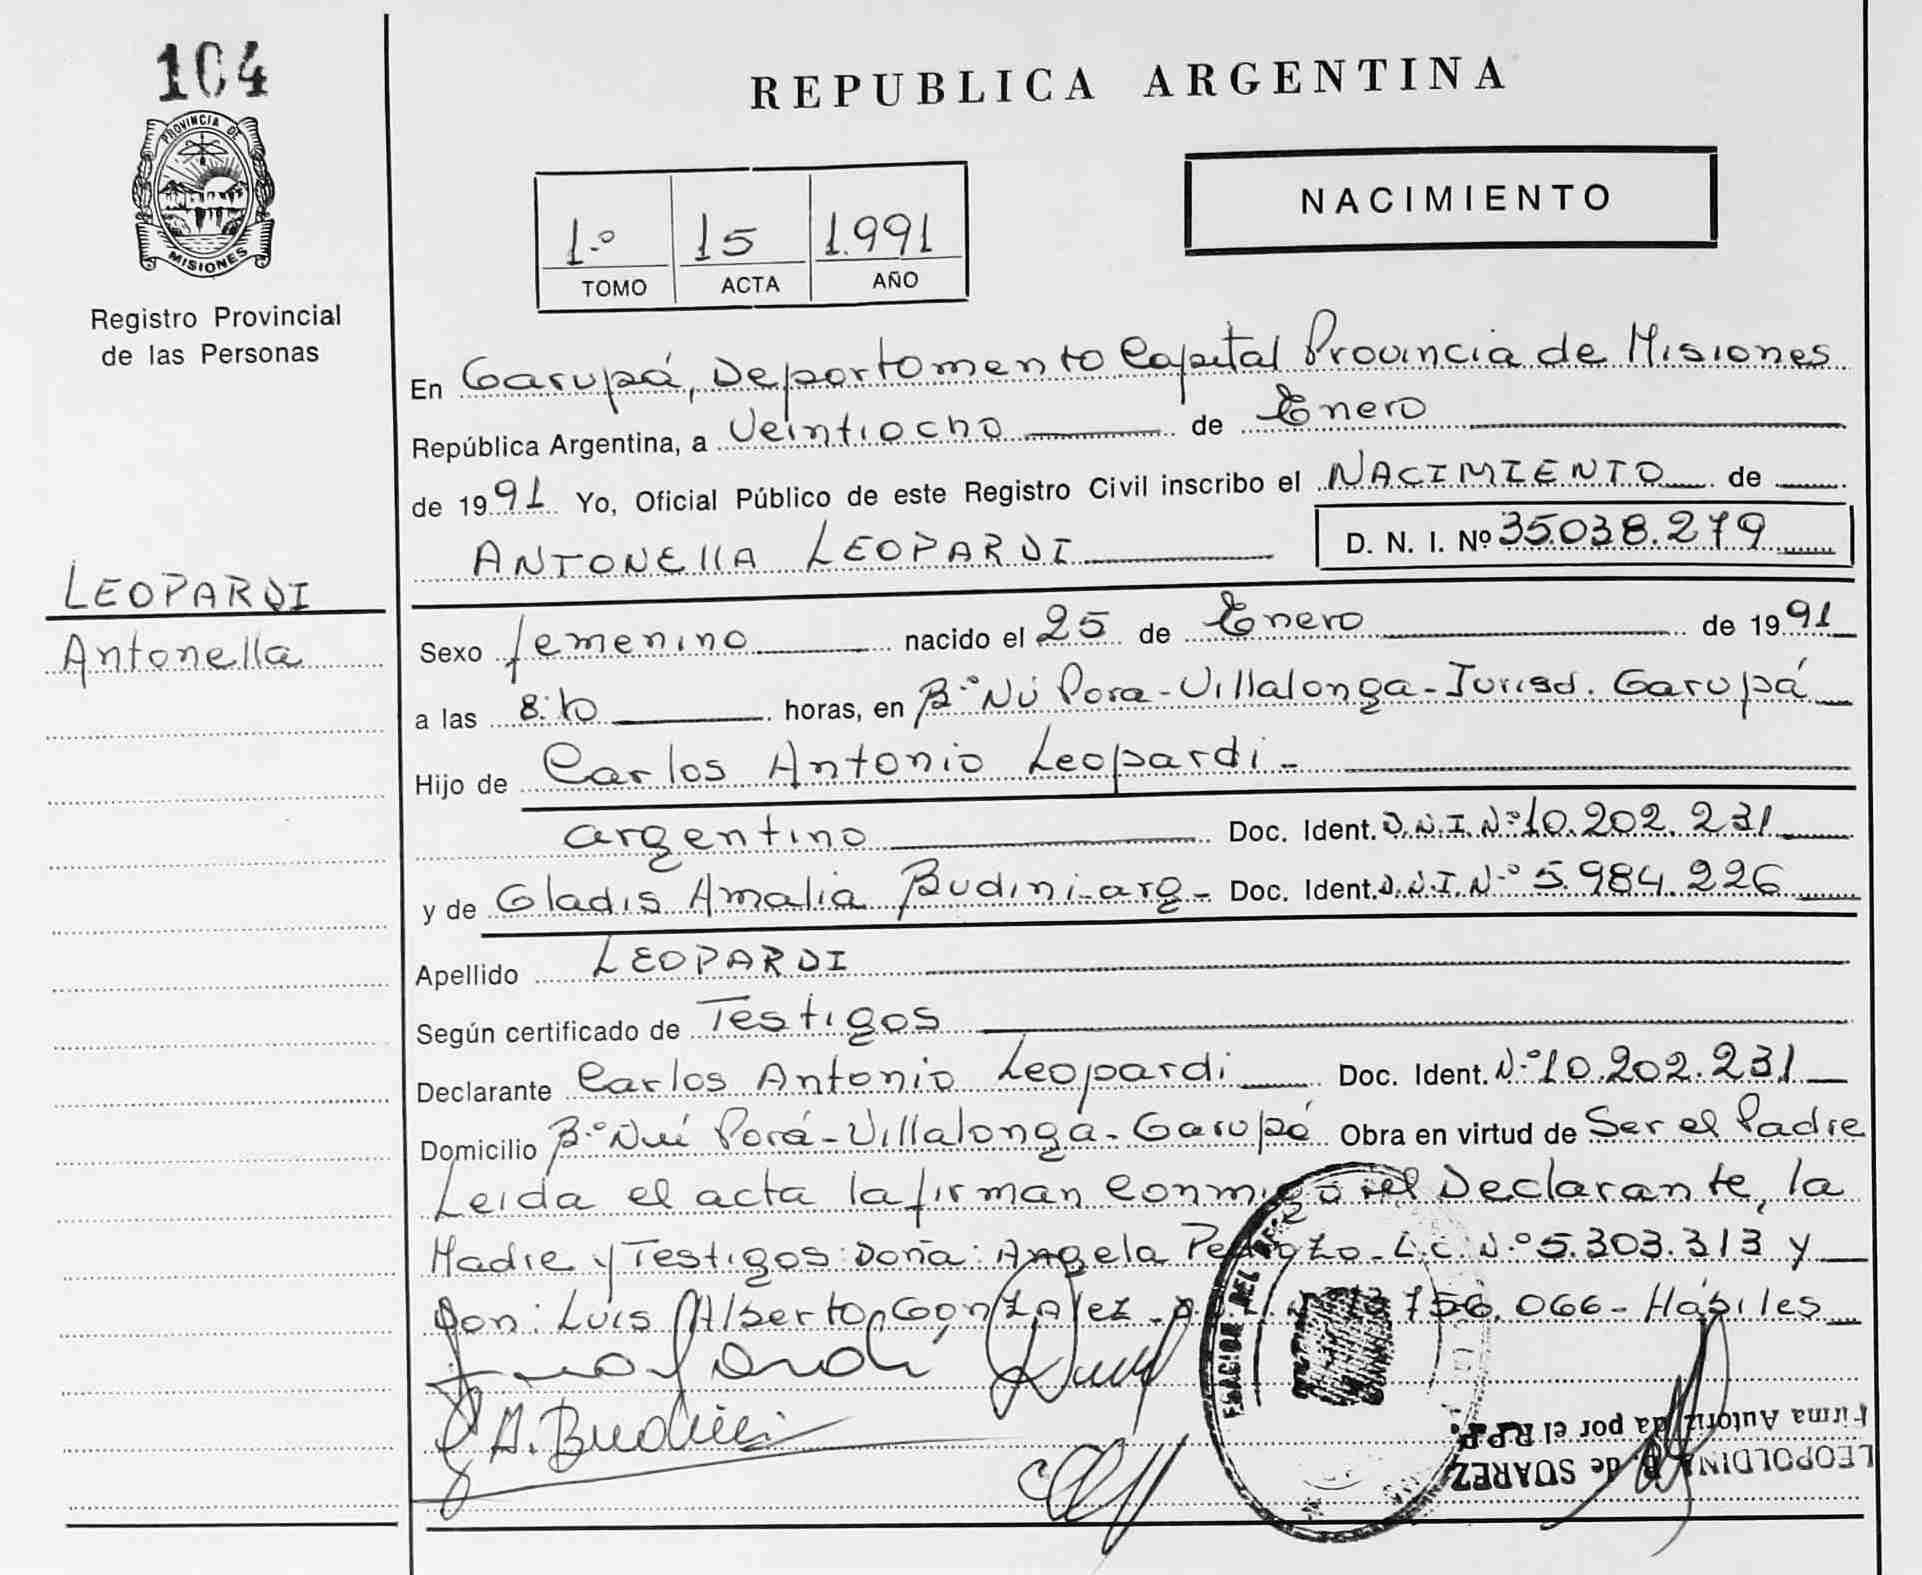 104
PROVINCIA DE
MISIONES
Registro Provincial
de las Personas
LEOPARDI
Antonella
REPUBLICA ARGENTINA
1.º 15 1.991
TOMO ACTA AÑO
NACIMIENTO
En Garupá, Departamento Capital Provincia de Misiones
República Argentina, a Veintiocho de Enero
de 1991 Yo, Oficial Público de este Registro Civil inscribo el NACIMIENTO de
ANTONEllA LEOPARDI D. N. I. Nº 35.038.279
Sexo femenino nacido el 25 de Enero de 1991
a las 8:10 horas, en B.º Nú Pora-Villalonga-Jurisd. Garupá
Hijo de Carlos Antonio Leopardi-
argentino Doc. Ident. D.N.I.Nº10.202.231
y de Gladis Amalia Budini-arg- Doc. Ident. D.N.I.Nº 5.984.226
Apellido LEOPARDI
Según certificado de Testigos
Declarante Carlos Antonio Leopardi Doc. Ident. N.º10.202.231
Domicilio B.º Ñú Porá-Villalonga-Garupá Obra en virtud de Ser el Padre
Leida el acta la firman conmigo el Declarante, la
Madre y Testigos: Doña: Angela Pedrozo-L.C. N.º5.303.313 y
Don: Luis Alberto Gonzalez 756.066- Hábiles
A. Budini
Firma Autorizada por el R.P.P.
LEOPOLDINA B. de SUAREZ